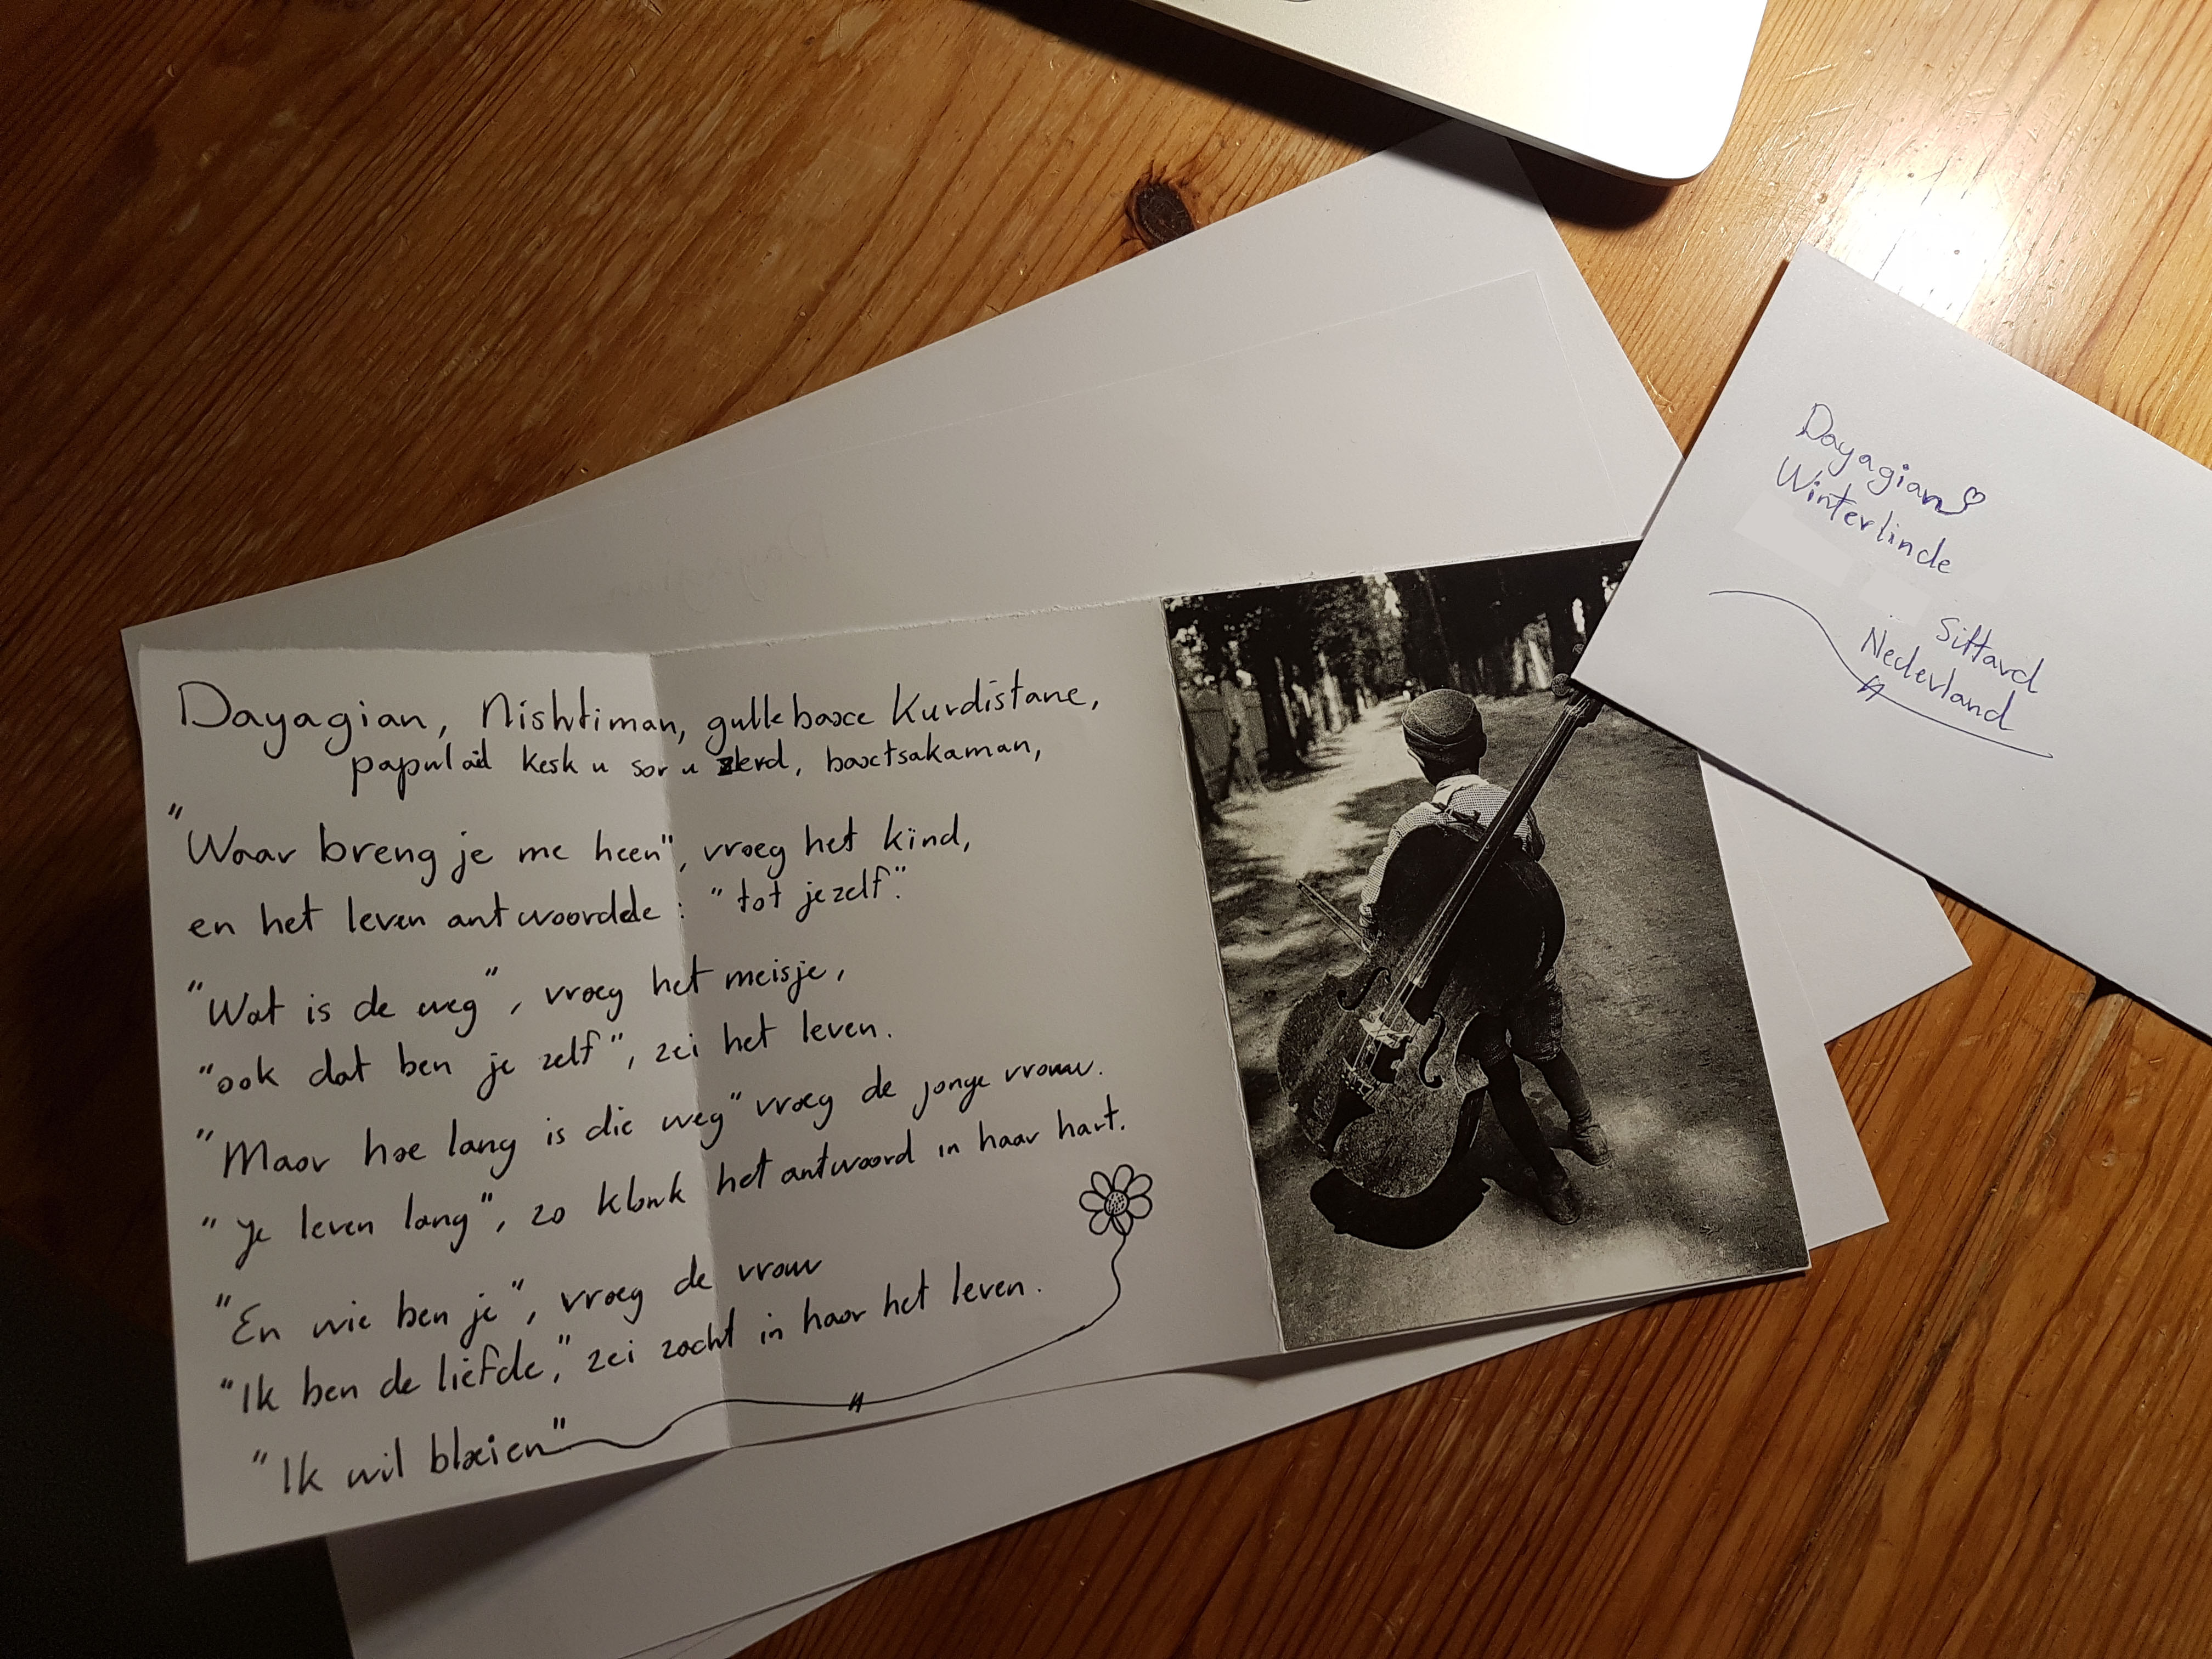 Dayagian, Nishtiman, gullebaxce Kurdistane,
papulaid kesk u sor u zerd, baxctsakaman,
"Waar breng je me heen", vroeg het kind,
en het leven antwoordde: "tot jezelf".
"Wat is de weg", vroeg het meisje,
"ook dat ben je zelf", zei het leven.
"Maar hoe lang is die weg" vroeg de jonge vrouw.
"Je leven lang", zo klonk het antwoord in haar hart.
"En wie ben je", vroeg de vrouw
"Ik ben de liefde," zei zacht in haar het leven.
"Ik wil bloeien"
Dayagian
Winterlinde
Sittard
Nederland